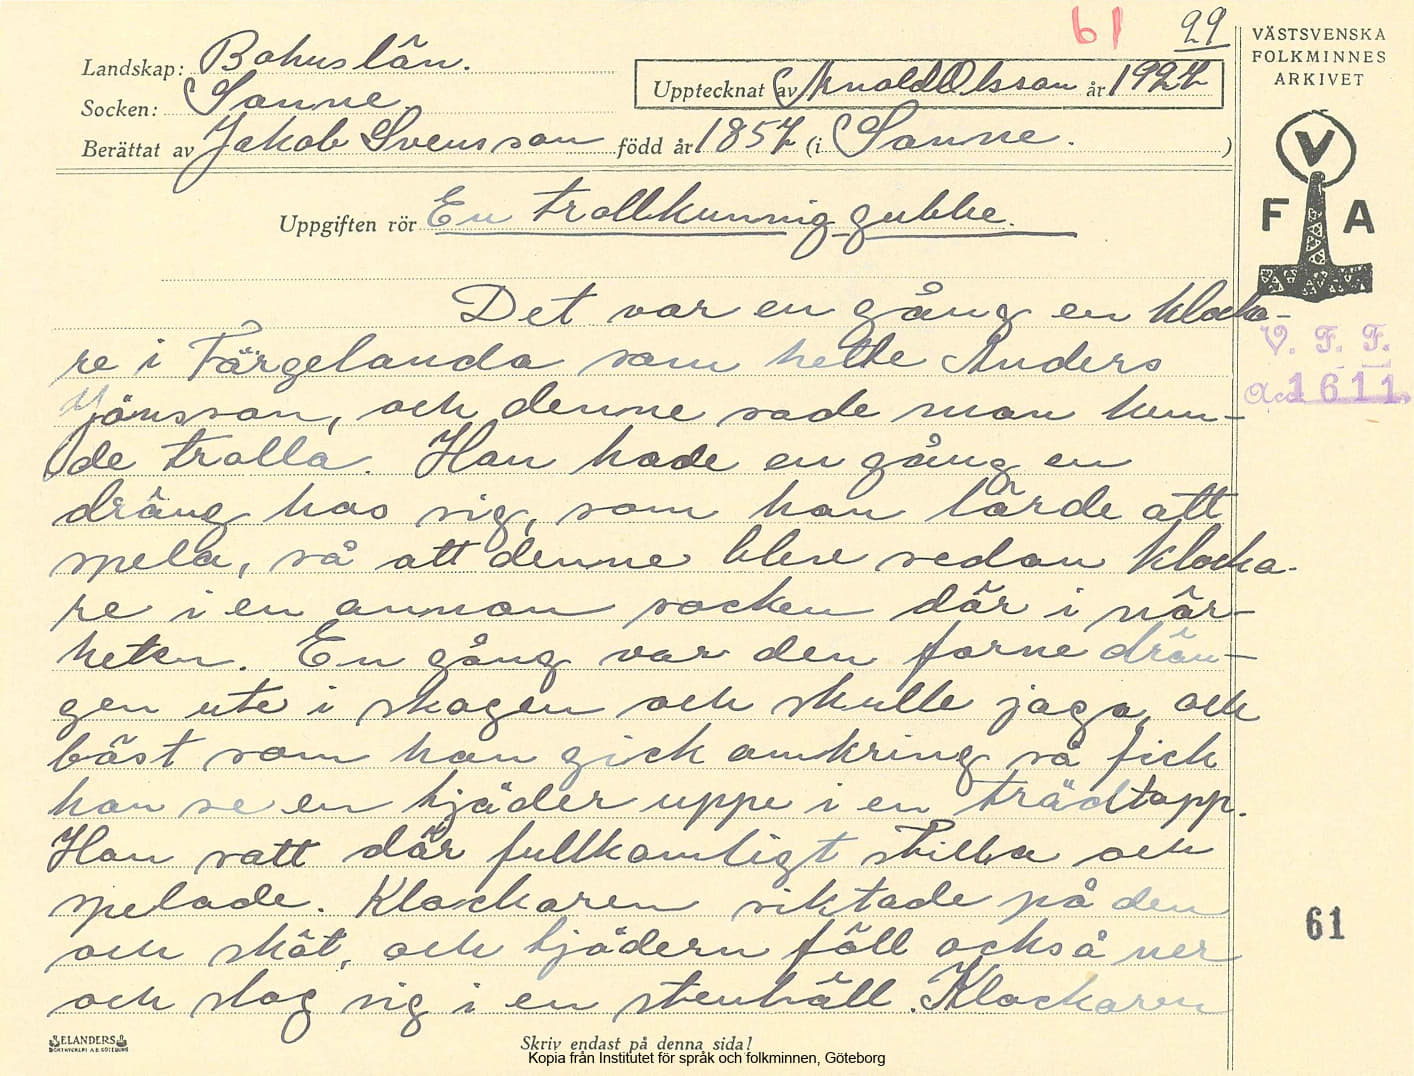 61 29
VÄSTSVENSKA
FOLKMINNES
ARKIVET
Landskap: Bohuslän.
Upptecknat av Arnold Olsson år 1927
Socken: Sanne.
Berättat av Jakob Svensson född år 1857 (i Sanne. )
V
F A
Uppgiften rör En trollkunnig gubbe.
Det var en gång en klocka-
re i Färgelanda som hette Anders
Jönsson, och denne sade man kun-
de trolla. Han hade en gång en
dräng hos sig, som han lärde att
spela, så att denne blev sedan klocka-
re i en annan socken där i när-
heten. En gång var den forne drän-
gen ute i skogen och skulle jaga, och
bäst som han gick omkring så fick
han se en tjäder uppe i en trädtopp.
Han satt där fullkomligt stilla och
spelade. Klockaren siktade på den
och sköt, och tjädern föll också ner
och slog sig i en stenhäll. Klockaren
V. F. F.
Acc 1611.
61
SELANDERS
BOKTRYCKERI A.B. GÖTEBORG
Skriv endast på denna sida!
Kopia från Institutet för språk och folkminnen, Göteborg